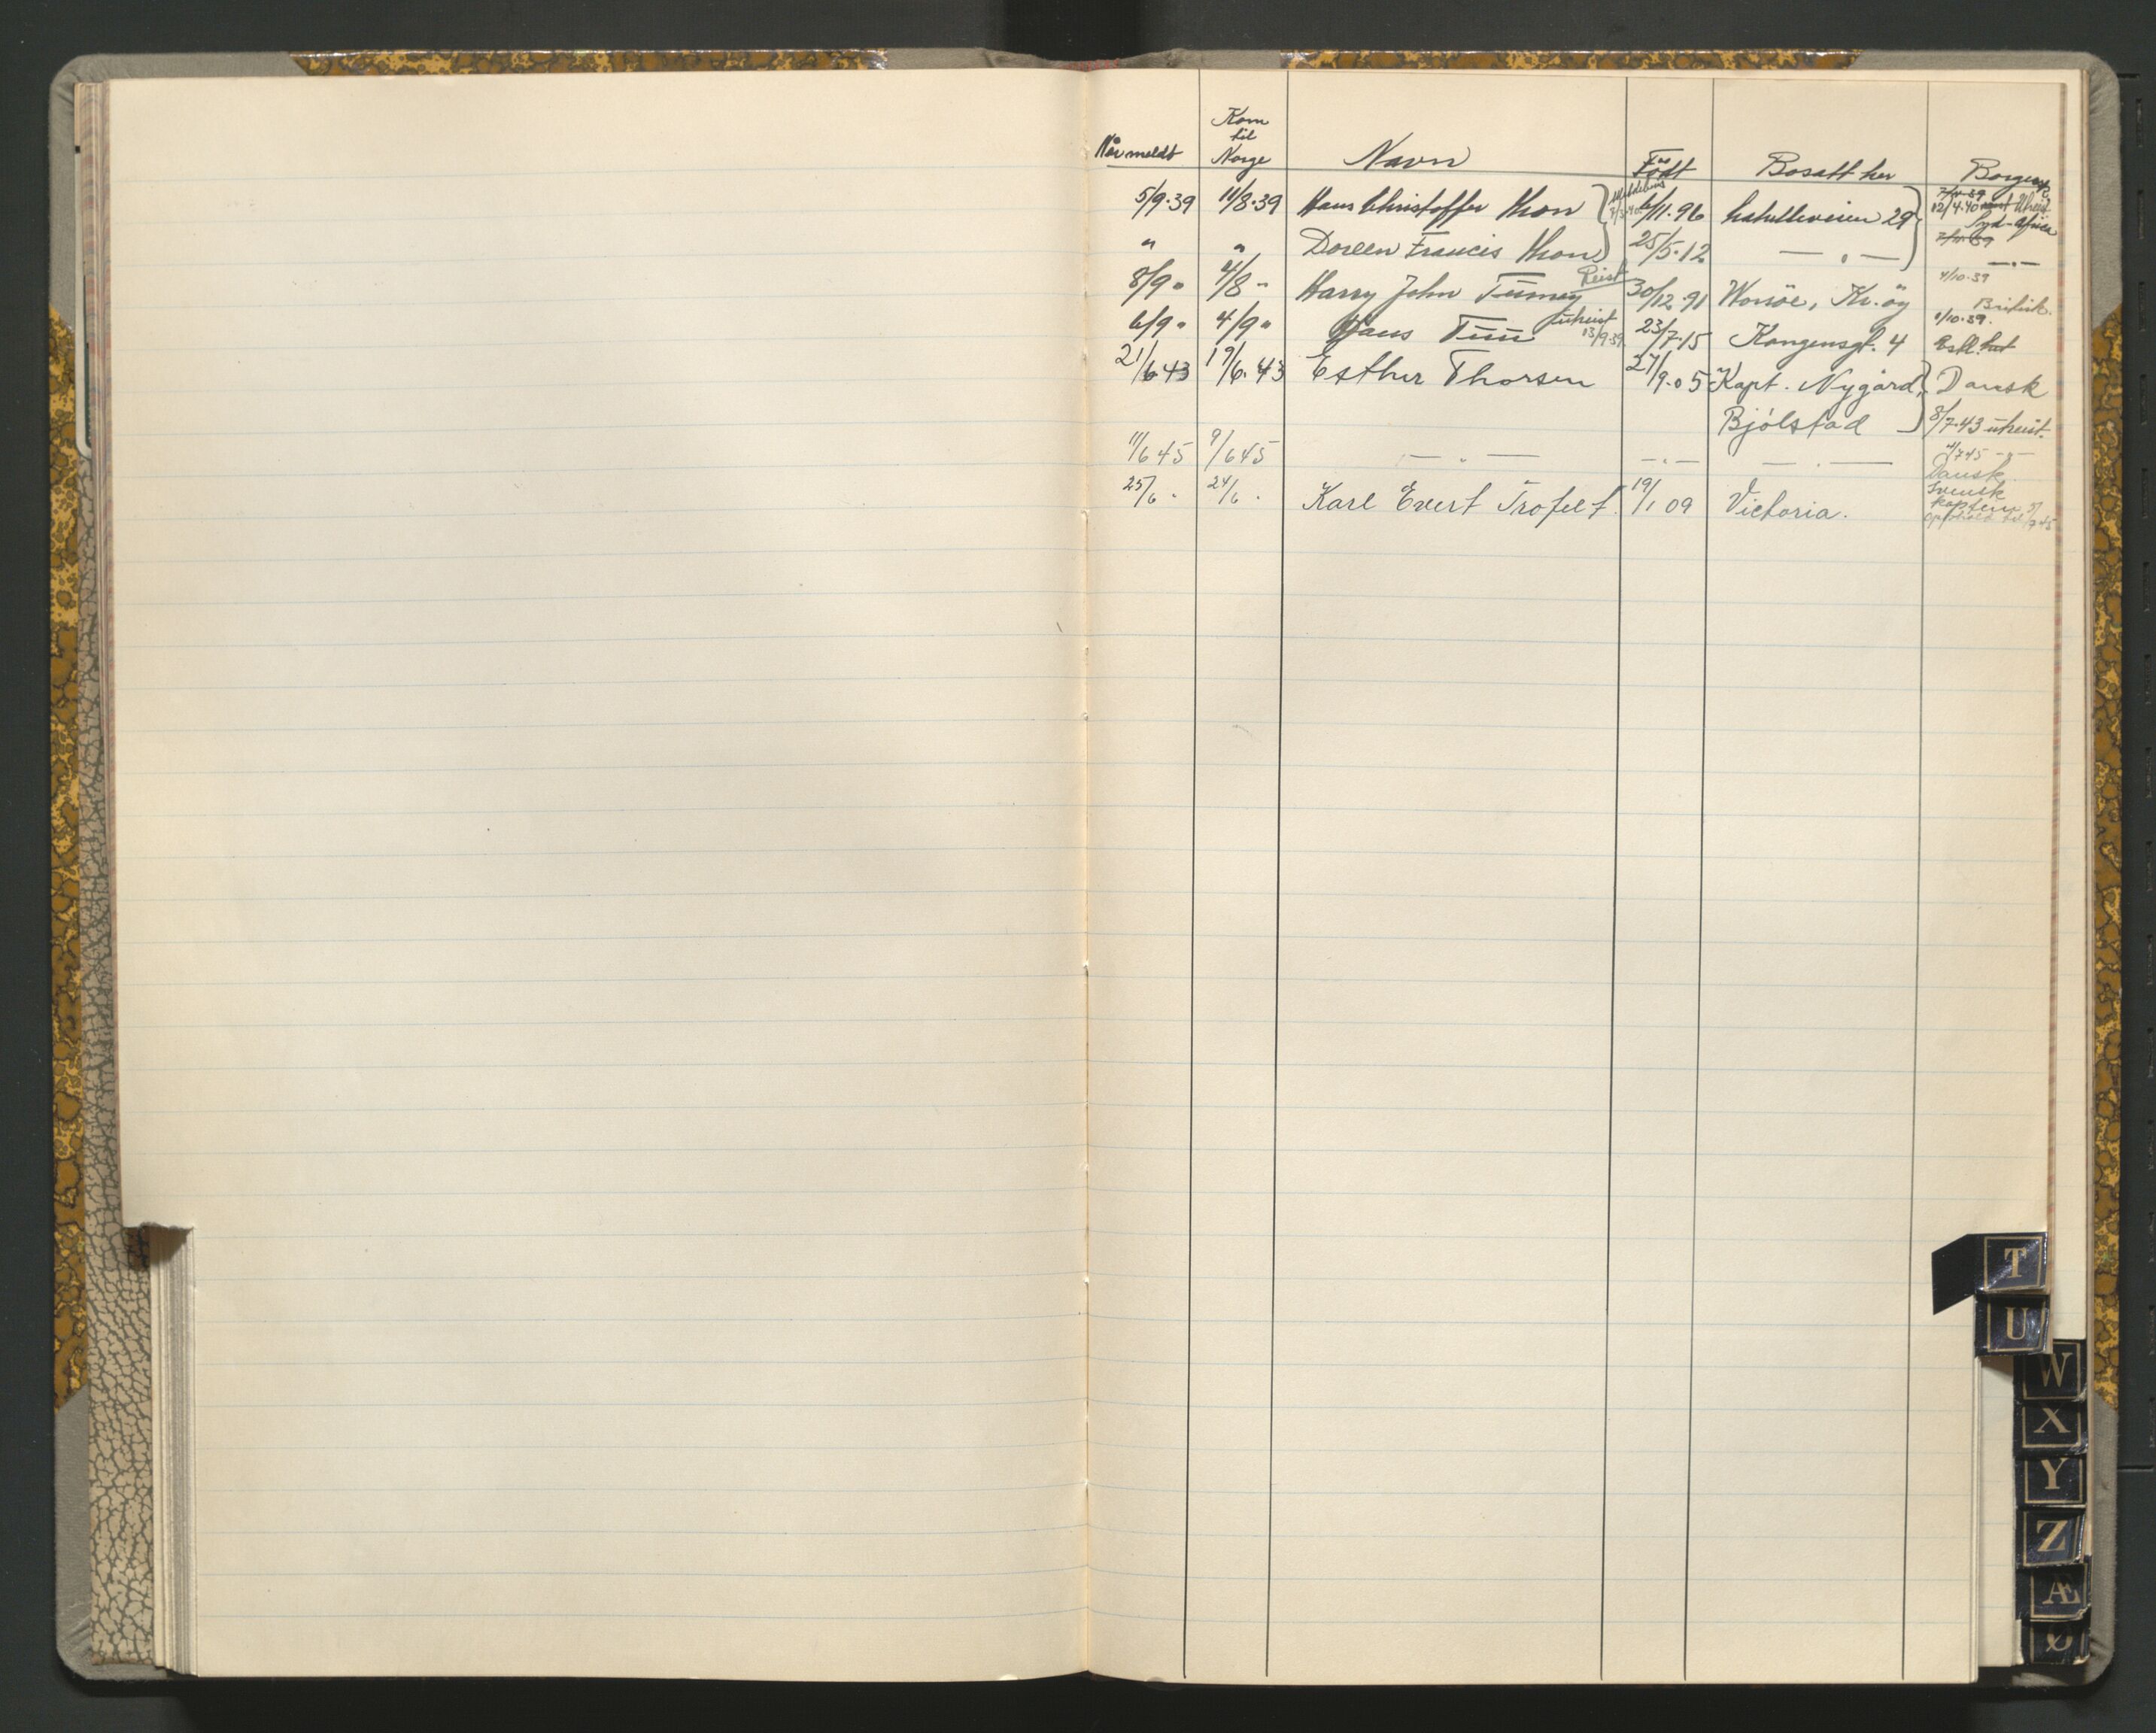 Når meldt Kom til Norge Navn Født Bosatt her Borgersk.
5/9.39 11/8.39 Hans Christoffer Thon 6/11.96 29 7/11.39 12/4.40 Utreist Syd-Africa
" " Doreen Francis Thon 25/5.12 — " — 7/11.39 — " —
8/9 " 4/8 " Harry John Reist 30/12.91 Kr.øy 4/10.39 British.
6/9 " 4/9 " Hans Tüü utreist 13/9.39 23/7.15 Kongensgt. 4 1/10.39. Estl.
21/6.43 19/6.43 Esther Thorsen 27/9.05 Kapt. Nygård, Dansk
Bjølstad 8/7.43 utreist.
11/6 45 9/6 45 — " — — " — — " — 4/7 45 — " — Dansk
25/6 " 24/6 " Karl Evert Trofelt. 19/1 09 Victoria. Svensk kaptein opphold til 5/7 45
T
U
W
X
Y
Z
Æ
Ø